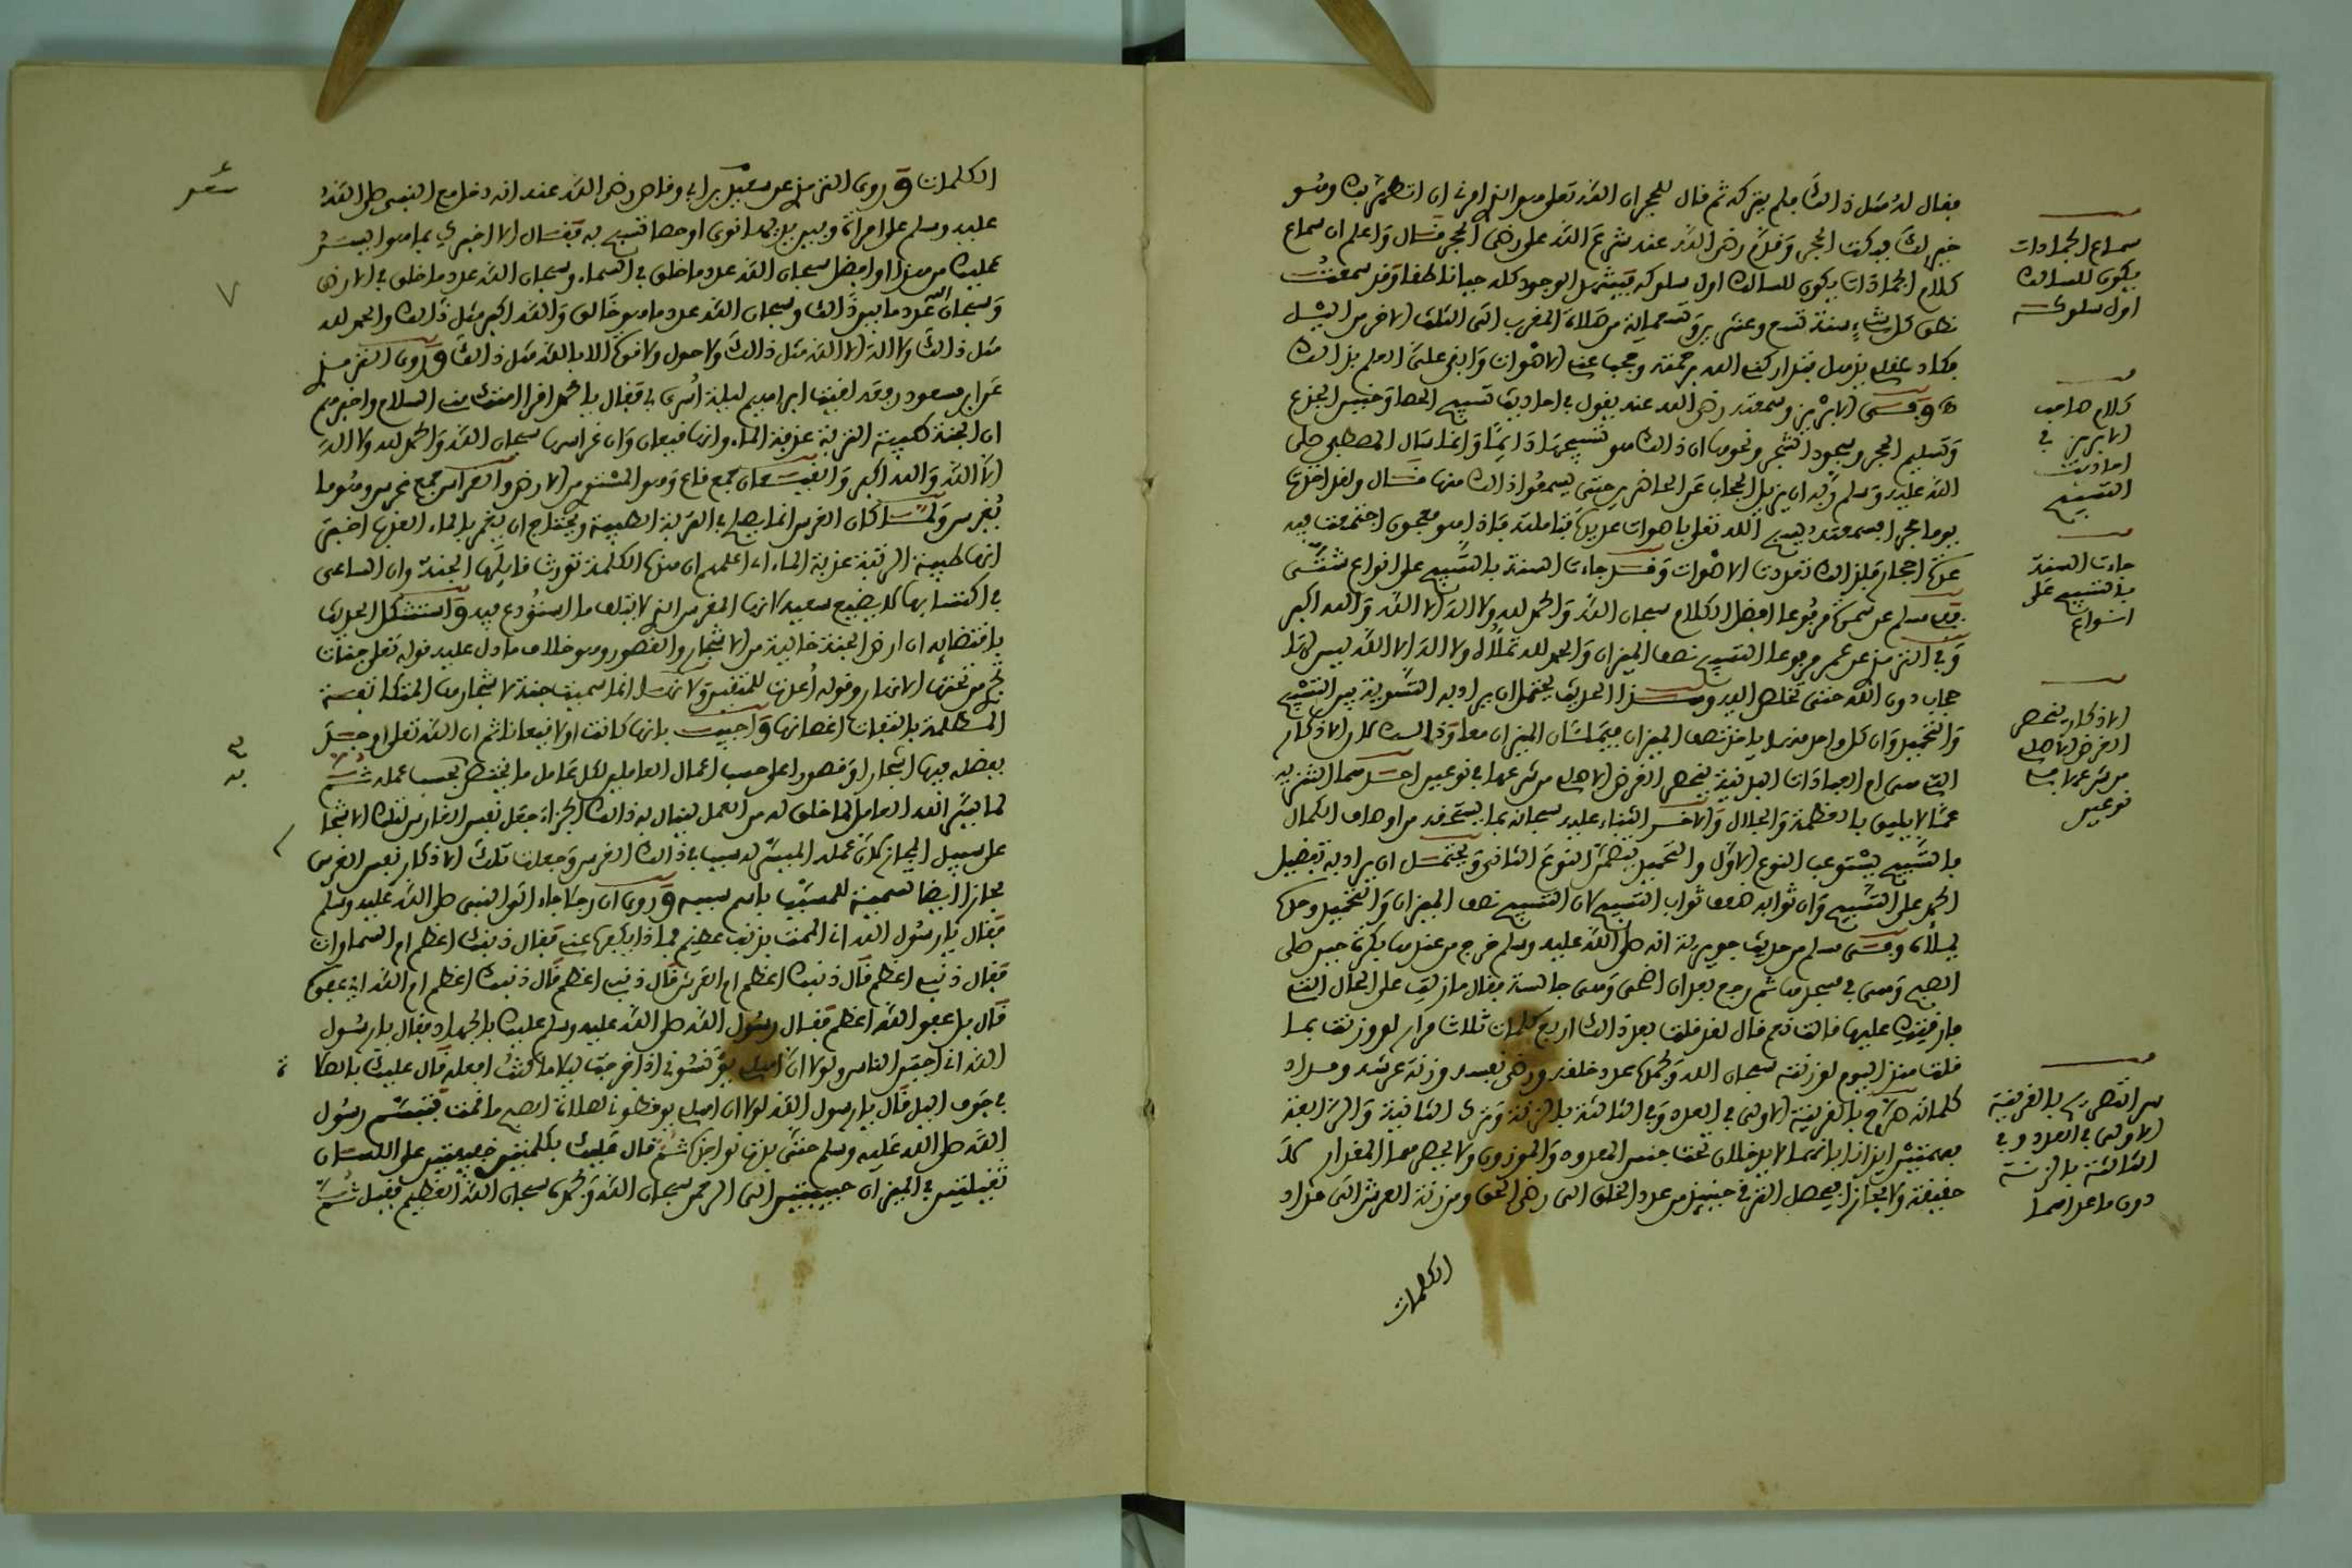 فقال له مثل ذالك فلم يتركه ثم قال للحجر ان الله تعلى هو الذي امرني ان اتطهر بك وهو
خير لك فيه كنت الحجر وقد رضي الله عند شرع الله على رضى الحجر قال واعلم ان سماع
كلام الجمادات يكون للسالك اول سلوكه فيشهد الوجود كله حيا ناطقا وقد سمعت
نطق كل شيء سنة تسع وعشرين وتسعماية من صلاة المغرب الى الثلث الاخر من اليل
فكاد عقلي يزول فتداركني الله برحمته وحجب عني الاصوات وابقى علي العلم بذالك
وفي الابريز وسمعته رضي الله عنه يقول في احاديث تسبيح الحصا وحنين الجذع
وتسليم الحجر وسجود الشجر ونحوها ان ذالك هو تسبيحها دايما وانما سال المصطفى صلى
الله عليه وسلم ربه ان يزيل الحجاب عن الحاضرين حتى يسمعوا ذالك منها قال ولقد اخذت
يوما حجرا فسمعته يسبح الله تعلى باصوات عديدة فتاملته فاذا هو مجموع اجتمعت فيه
عدة احجار فلذالك تعددت الاصوات وقد جاءت السنة بالتسبيح على انواع شتى
ففي مسلم عن سمرة مرفوعا افضل الكلام سبحان الله والحمد لله ولا اله الا الله والله اكبر
وفي الترمذي عن عمر مرفوعا التسبيح نصف الميزان والحمد لله تملأه ولا اله الا الله ليس لها
حجاب دون الله حتى تخلص اليه وهذا الحديث يحتمل ان يراد به التسوية بين التسبيح
والتحميد وان كل واحد منهما ياخذ نصف الميزان فيملئان الميزان معا وذالك لان الاذكار
التي هي ام العبادات البدنية ينحصر الغرض الاصلي من شرعها في نوعين احدهما التنزيه
عما لا يليق بالعظمة والجلال والاخر الثناء عليه سبحانه بما يستحقه من اوصاف الكمال
فالتسبيح يستوعب النوع الاول والتحميد يتضمن النوع الثاني ويحتمل ان يراد به تفضيل
الحمد على التسبيح وان ثوابه ضعف ثواب التسبيح لان التسبيح نصف الميزان والتحميد وحده
يملأه وفي مسلم من حديث جويرية انه صلى الله عليه وسلم خرج من عندها بكرة حين صلى
الصبح وهي في مسجدها ثم رجع بعد ان اضحى وهي جالسة فقال مازلت على الحال التي
فارقتك عليها قالت نعم قال لقد قلت بعدك اربع كلمات ثلاث مرار لو وزنت بما
قلت منذ اليوم لوزنته سبحان الله وبحمده عدد خلقه ورضى نفسه وزنة عرشه ومداد
كلماته صرح بالقرينة الاولى في العدد وفي الثالثة بالزنة وترك الثانية والرابعة
حقيقة ولا مجازا فيحصل الترقي حينيذ من عدد الخلق الى رضى الحق ومن زنة العرش الى مداد
الكلمات
سماع الجمادات
يكون للسالك
اول سلوكه
كلام صاحب
الابريز في
احاديث
التسبيح
جاءت السنة
بالتسبيح على
انواع
الاذكار ينحصر
الغرض الاصلي
من شرعها في
نوعين
سر التصريح بالقرينة
الاولى في العدد وفي
الثالثة بالزنة
دون ما عداهما
الكلمات وروى الترمذي عن سعد بن ابي وقاص رضي الله عنه انه دخل مع النبي صلى الله
عليه وسلم على امراة وبين يديها نوى او حصا تسبح به فقال الا اخبرك بما هو ايسر
عليك من هذا او افضل سبحان الله عدد ما خلق في السماء وسبحان الله عدد ما خلق في الارض
وسبحان الله عدد ما بين ذالك وسبحان الله عدد ما هو خالق والله اكبر مثل ذالك والحمد لله
مثل ذالك ولا اله الا الله مثل ذالك ولا حول ولا قوة الا بالله مثل ذالك وروى الترمذي
عن ابن مسعود رفعه لقيت ابراهيم ليلة اسري بي فقال يا محمد اقرا امتك مني السلام واخبرهم
ان الجنة طيبة التربة عذبة الماء وانها قيعان وان غراسها سبحان الله والحمد لله ولا اله
الا الله والله اكبر والقيعان جمع قاع وهو المستوي من الارض والغراس جمع غرس وهو ما
يغرس ولما كان الغرس انما يصلح في التربة الطيبة ويحتاج ان يتخمر بالماء العذب اخبره
انها طيبة التربة عذبة الماء اي اعلمهم ان هذه الكلمة تورث قايلها الجنة وان الساعي
في اكتسابها لا يضيع سعيه لانها المغرس الذي لا يتلف ما استودع فيه واستشكل الحديث
باقتضايه ان ارض الجنة خالية من الاشجار والقصور وهو خلاف ما دل عليه قوله تعلى جنات
تجري من تحتها الانهار وقوله اعدت للمتقين ولانها انما سميت جنة لاشجارها المتكاثفة
المظللة بالتفاف اغصانها واجيب بانها كانت اولا قيعانا ثم ان الله تعلى اوجد
بفضله فيها اشجارا وقصورا على حسب اعمال العاملين لكل عامل ما يختص بحسب عمله ثم
لما يسر الله العامل لما خلق له من العمل لينال به ذالك الجزاء جعل نفس الغارس لتلك الاشجار
على سبيل المجاز لان عمله الميسر له سببا في ذالك الغرس وجعلت تلك الاذكار نفس الغرس
مجازا ايضا تسمية للمسبب باسم سببه وروى ان رجلا جاء الى النبي صلى الله عليه وسلم
فقال يا رسول الله اني الممت بذنب عظيم فما ذا يكفره عني فقال ذنبك اعظم ام السماوات
فقال ذنبي اعظم قال ذنبك اعظم ام العرش قال ذنبي اعظم قال ذنبك اعظم ام الله اي عفوه
قال بل عفو الله اعظم فقال رسول الله صلى الله عليه وسلم عليك بالجهاد فقال يا رسول
الله اني اجبن الناس ولولا ان اهلي يونسوني اذا خرجت ليلا ما كنت افعله قال عليك بالصلاة
في جوف اليل قال يا رسول الله لولا ان اهلي يوقظوني لصلاة الصبح ما قمت فتبسم رسول
الله صلى الله عليه وسلم حتى بدت نواجذه ثم قال عليك بكلمتين خفيفتين على اللسان
ثقيلتين في الميزان حبيبتين الى الرحمن سبحان الله وبحمده سبحان الله العظيم